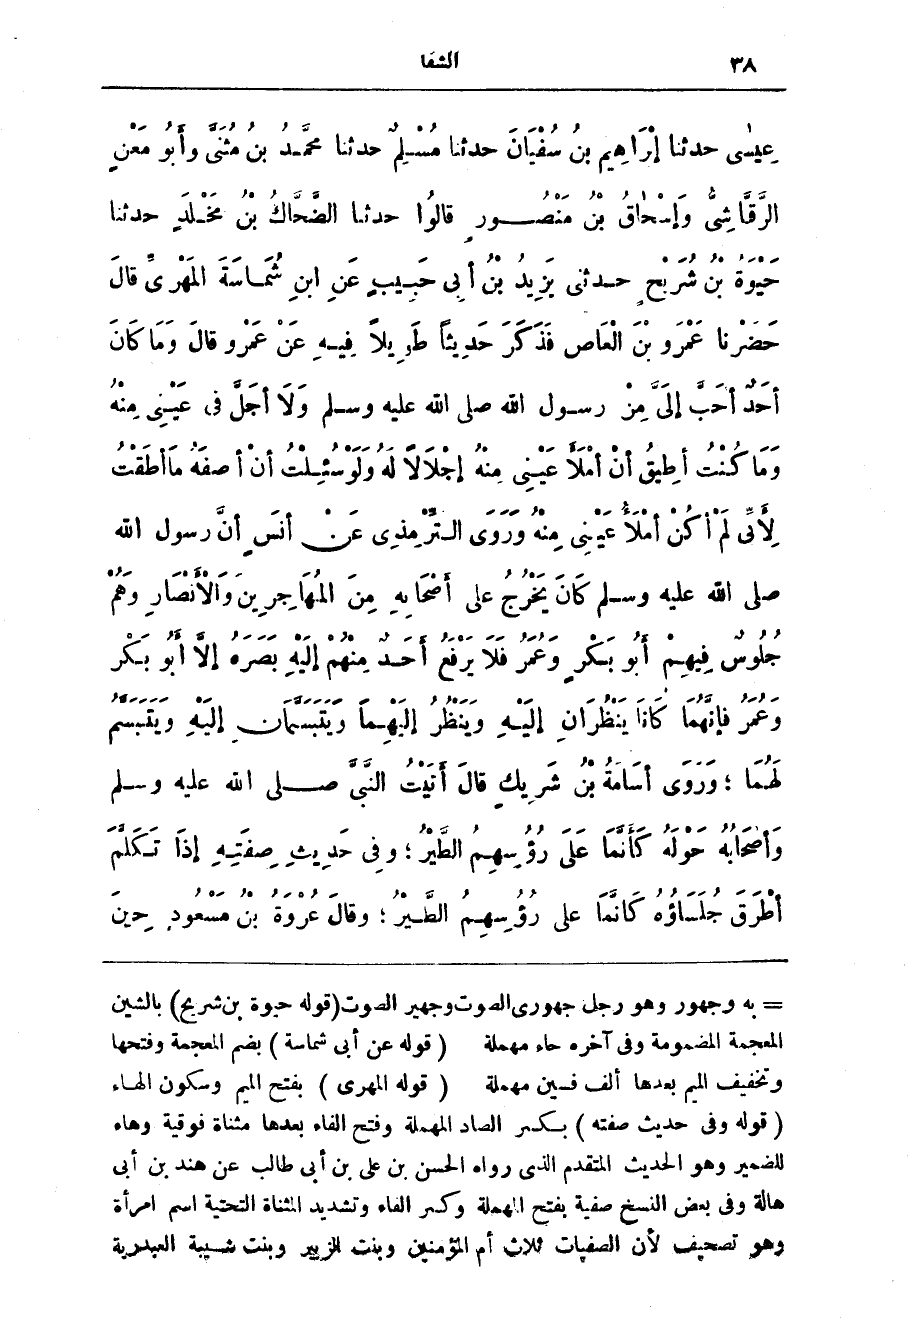 ٣٨ الشفا
عِيسَى حدثنا إِبْرَاهِيم بنُ سُفْيَانَ حدثنا مُسْلِمٌ حدثنا محمَّدُ بنُ مُثَنَّى وأَبُو مَعْنٍ
الرَّقَّاشِىُّ وَإِسْحَاقُ بْنُ مَنْصُورٍ قالُوا حدثنا الضَّحَّاكُ بْنُ مَخْلَدٍ حدثنا
حَيْوَةُ بْنُ شُرَيْحٍ حدثنى يَزِيدُ بْنُ أبى حَبِيبٍ عَنِ ابنِ شُمَاسَةَ المَهْرىِّ قالَ
حَضَرْنا عَمْرَو بْنَ الْعَاصِ فَذَكَرَ حَدِيثاً طَوِيلاً فِيهِ عَنْ عَمْرو قالَ وَمَا كَانَ
أحَدٌ أحَبَّ إلَىَّ مِنْ رسول الله صلى الله عليه وسلم وَلَا أجَلَّ فى عَيْنِى مِنْهُ
وَمَا كُنْتُ أُطِيقُ أنْ أمْلَأَ عَيْنِى مِنْهُ إِجْلَالاً لَهُ وَلَوْ سُئِلْتُ أنْ أصِفَهُ مَا أطَقْتُ
لِأَنِّى لَمْ أكُنْ أمْلَأُ عَيْنِى مِنْهُ وَرَوَى التِّرْمِذِى عَنْ أنَسٍ أنَّ رسول الله
صلى الله عليه وسلم كَانَ يَخْرُجُ على أَصْحَابِهِ مِنَ المُهَاجِرِينَ وَالْأَنْصَارِ وَهُمْ
جُلُوسٌ فِيهِمْ أَبُو بَكْرٍ وَعُمَرُ فَلَا يَرْفَعُ أَحَدٌ مِنْهُمْ إِلَيْهِ بَصَرَهُ إلَّا أبُو بَكْرٍ
وَعُمَرُ فإنَّهُمَا كَانَا يَنْظُرَانِ إِلَيْهِ وَيَنْظُرُ إِلَيْهِمَا وَيَتَبَسَّمَانِ إِلَيْهِ وَيَتَبَسَّمُ
لَهُمَا ؛ وَرَوَى أُسَامَةُ بْنُ شَرِيكٍ قالَ أَتَيْتُ النَّبَّ صلى الله عليه وسلم
وَأَصْحَابُهُ حَوْلَهُ كَأَنَّمَا عَلَى رُؤُسِهِمُ الطَّيْرُ ؛ وفى حَدِيثِ صِفَتِهِ إِذَا تَكَلَّمَ
أَطْرَقَ جُلَسَاؤُهُ كَانَّمَا على رُؤُسِهِمُ الطَّيْرُ ؛ وقالَ عُرْوَةُ بْنُ مَسْعُودٍ حِينَ
= به وجهور وهو رجل جهورى الصوت وجهير الصوت (قوله حيوة بن شريح) بالشين
المعجمة المضمومة وفى آخره حاء مهملة ( قوله عن أبى شماسة ) بضم المعجمة وفتحها
وتخفيف الميم بعدها ألف فسين مهملة ( قوله المهرى ) بفتح الميم وسكون الهاء
( قوله وفى حديث صفته ) بكسر الصاد المهملة وفتح الفاء بعدها مثناة فوقية وهاء
للضمير وهو الحديث المتقدم الذى رواه الحسن بن على بن أبى طالب عن هند بن أبى
هالة وفى بعض النسخ صفية بفتح المهملة وكسر الفاء وتشديد المثناة التحتية اسم امرأة
وهو تصحيف لأن الصفيات ثلاث أم المؤمنين وبنت الزبير وبنت شيبة العبدرية